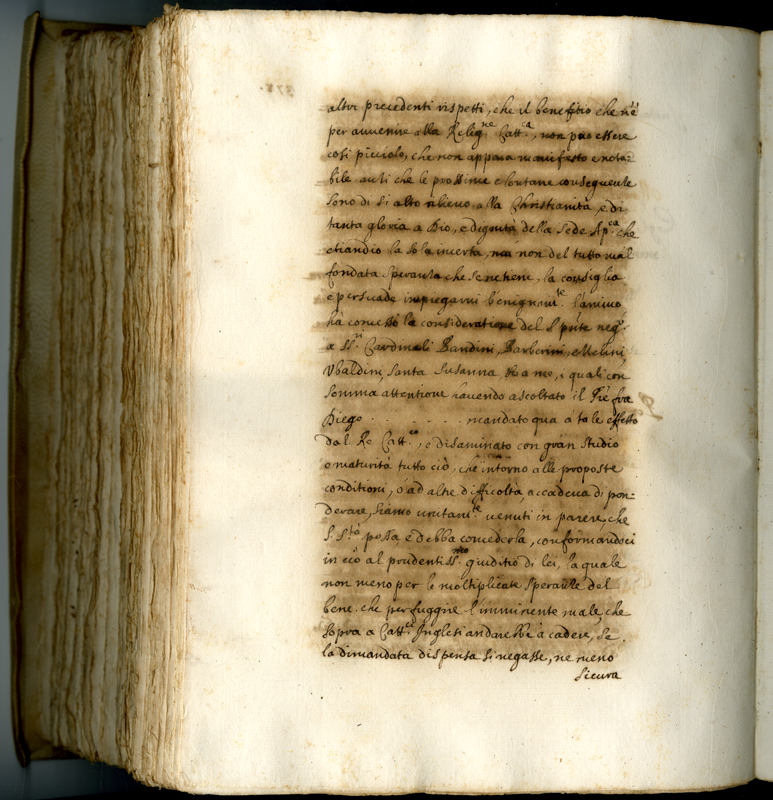 altri precedenti rispetti, che il beneficio che n'è
per auuenire alla Relig.ne Catt.ca, non può essere
cosi picciolo, che non appaia manifesto e nota-
bile anti che le prossime e lontane conseguenze
sono di si alto rilieuo alla Christianità, e di
tanta gloria a Dio, e dignità della Sede Ap.ca che
etiandio la sola incerta, ma non del tutto mal
fondata speranza che se ne tiene, la consiglia
e persuade impiegarui benignam.te l'animo
hà comesso la consideratione del S. pnte neg.o
a SS.ri Cardinali Bandini, Barberini, e Melini,
Vbaldini, Santa Susanna & a me, i quali con
somma attentione hauendo ascoltato il P're fra
Diego . . . . . . mandato qua à tale effetto
dal Re Catt.co, e disaminato con gran studio
e maturità tutto ciò, che intorno alle proposte
conditioni, ò ad altre difficoltà accadeua di pon-
derare, siamo unitam.te uenuti in parere, che
S. S.tà possa e debba concederla, conformandoci
in ciò al prudentiss.mo giuditio di lei, la quale
non meno per le moltiplicate speranze del
bene che per fuggire l'imminente male, che
sopra a Catt.ci Inglesi andarebbe à cadere, se
la dimandata dispensa si negasse, ne meno
sicura